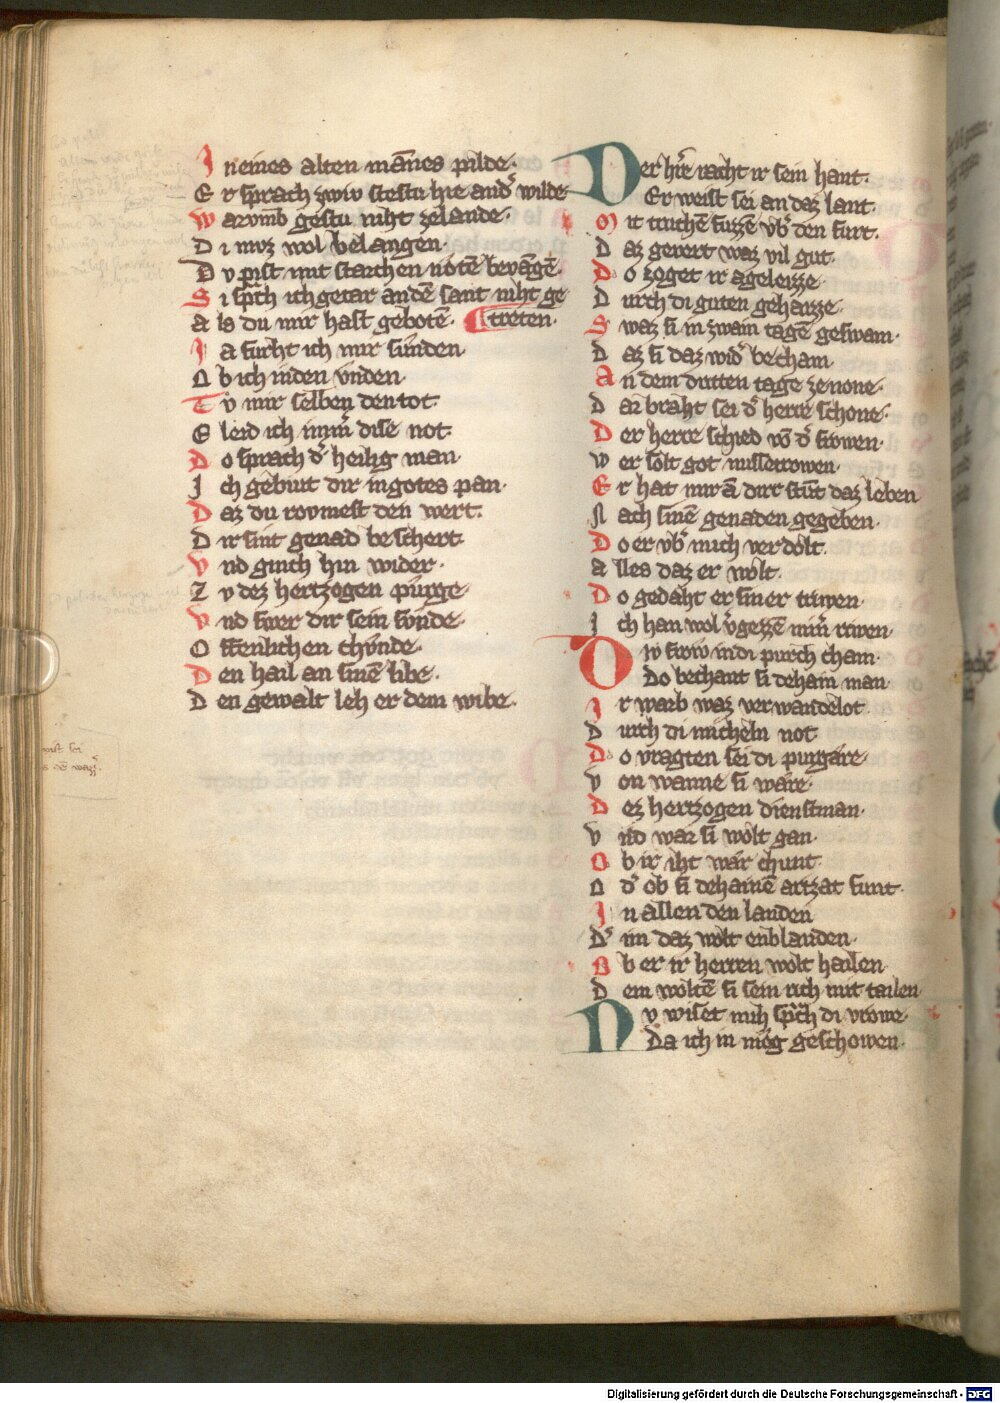 In eines alten mānes pilde·
Er sprach zwiv stestu hie and᾽ wilde
Warvmb gestu niht zelande·
Di mvz wol belangen·
Dv pist mit starchen nōtē bevāgē·
Si sp᾽ch ich getar andē sant niht ge
Als du mir hast gebotē· treten·
Ja furht ich mir sunden
Ob ich inden vnden·
Tv mir selben den tot·
E leid ich im̄ dise not·
Do sprach d᾽ heilig man·
Ich gebiut dir in gotes pan·
Daz du rovmest den wert·
Dir sint genad beschert
Vnd ginch hin wider·
Zv dez hertzogen purge·
Vnd swer dir sein svnde·
Offenlichen chvnde·
Den hail an sinē libe·
Den gewalt leh er dem wibe·
Der h᾽re racht ir sein hant·
Er weist sei an daz lant·
Mit truchē fuzzē vb᾽ den furt·
Daz gevert waz vil gut·
Do zoget ir ageleizze·
Durch di guten geháizze·
Swaz si in zwain tagē geswam·
Daz si daz wid᾽ becham·
An dem dritten tage ze none·
Dar braht sei d᾽ herre schone·
Der herre schied vō d᾽ frowen·
Wer solt got missetrowen·
Er hat mir ā dirr stūt daz leben
Nach sinē genaden gegeben·
Do er vb᾽ mich verdolt·
Alles daz er wolt·
Do gedaht er siner triwen·
Ich han wol v᾽gezzē min᾽ riwen·
Div frow in di purch cham·
Do bechant si dehain man·
Ir warb waz verwandelot
Durch di micheln not
Do vragten sei di purgāre·
Von wanne si wāre·
Dez hertzogen dienstman·
Vnd war si wolt gan·
Ob ir iht wār chunt·
Od᾽ ob si dehainē artzat funt·
In allen den landen
D᾽ im daz wolt enblanden·
Ob er ir herren wolt hailen
Dem woltē si sein rich mit tailen
Nv wiset mih sp᾽ch di vrowe·
Da ich in mög geschowen·
Digitalisierung gefördert durch die Deutsche Forschungsgemeinschaft - DFG